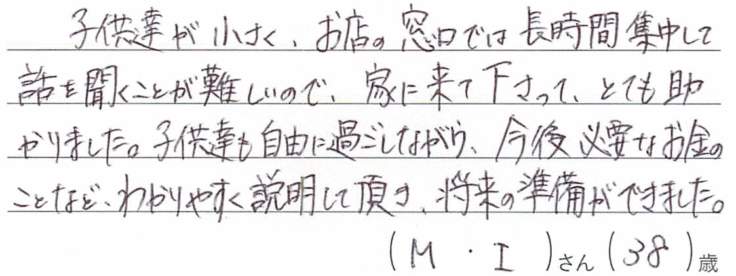 子供達が小さく、お店の窓口では長時間集中して
話を聞くことが難しいので、家に来て下さって、とても助
かりました。子供達も自由に過ごしながら、今後必要なお金の
ことなど、わかりやすく説明して頂き、将来の準備ができました。
(M・I)さん(38)歳